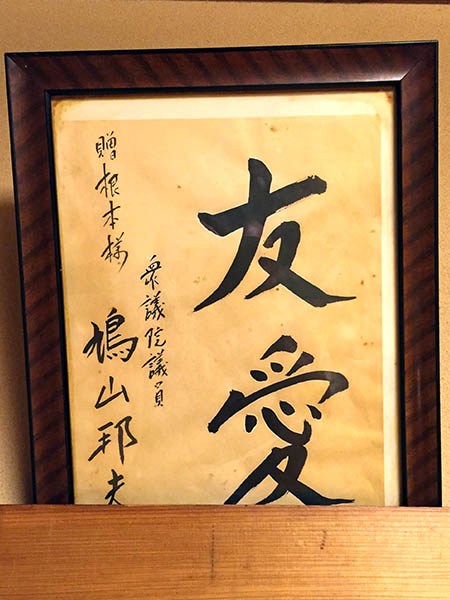 友愛
衆議院議員
鳩山邦夫
贈根本様